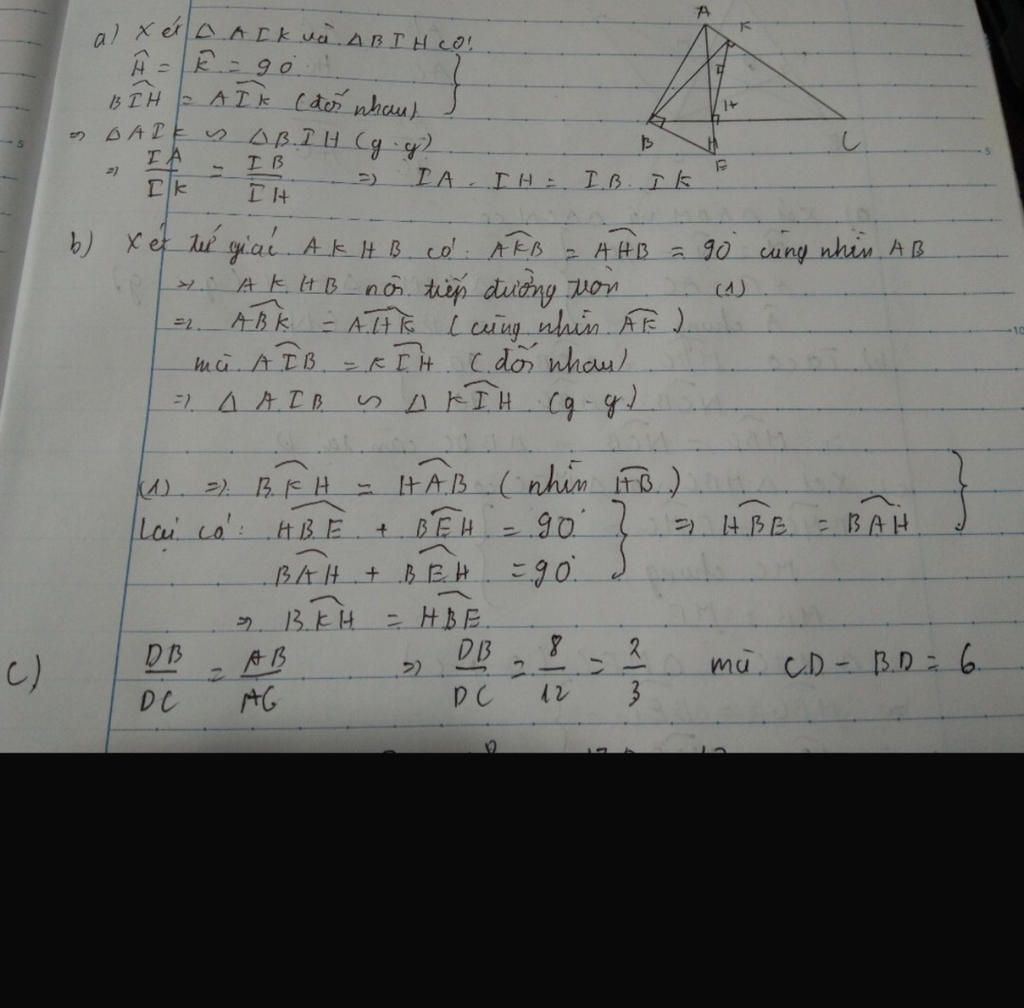 a) Xét △ AIK và △BIH có:
Ĥ = K̂ = 90°
BIH = AIK (đối nhau)
⇒ △AIK ∽ △BIH (g.g)
⇒ IA/IK = IB/IH ⇒ IA . IH = IB. IK
A K
I
H
B H C
E
b) Xét tứ giác AKHB có: AKB = AHB = 90° cùng nhìn AB
⇒ AKHB nội tiếp đường tròn (1)
⇒ ABK = AHK (cùng nhìn AK)
mà AIB = KIH (đối nhau)
⇒ △ AIB ∽ △ KIH (g-g)
(1) ⇒ BKH = HAB (nhìn HB)
Lại có: HBE + BEH = 90° ⇒ HBE = BAH
BAH + BEH = 90°
⇒ BKH = HBE
c) DB/DC = AB/AC ⇒ DB/DC = 8/12 = 2/3 mà CD - BD = 6